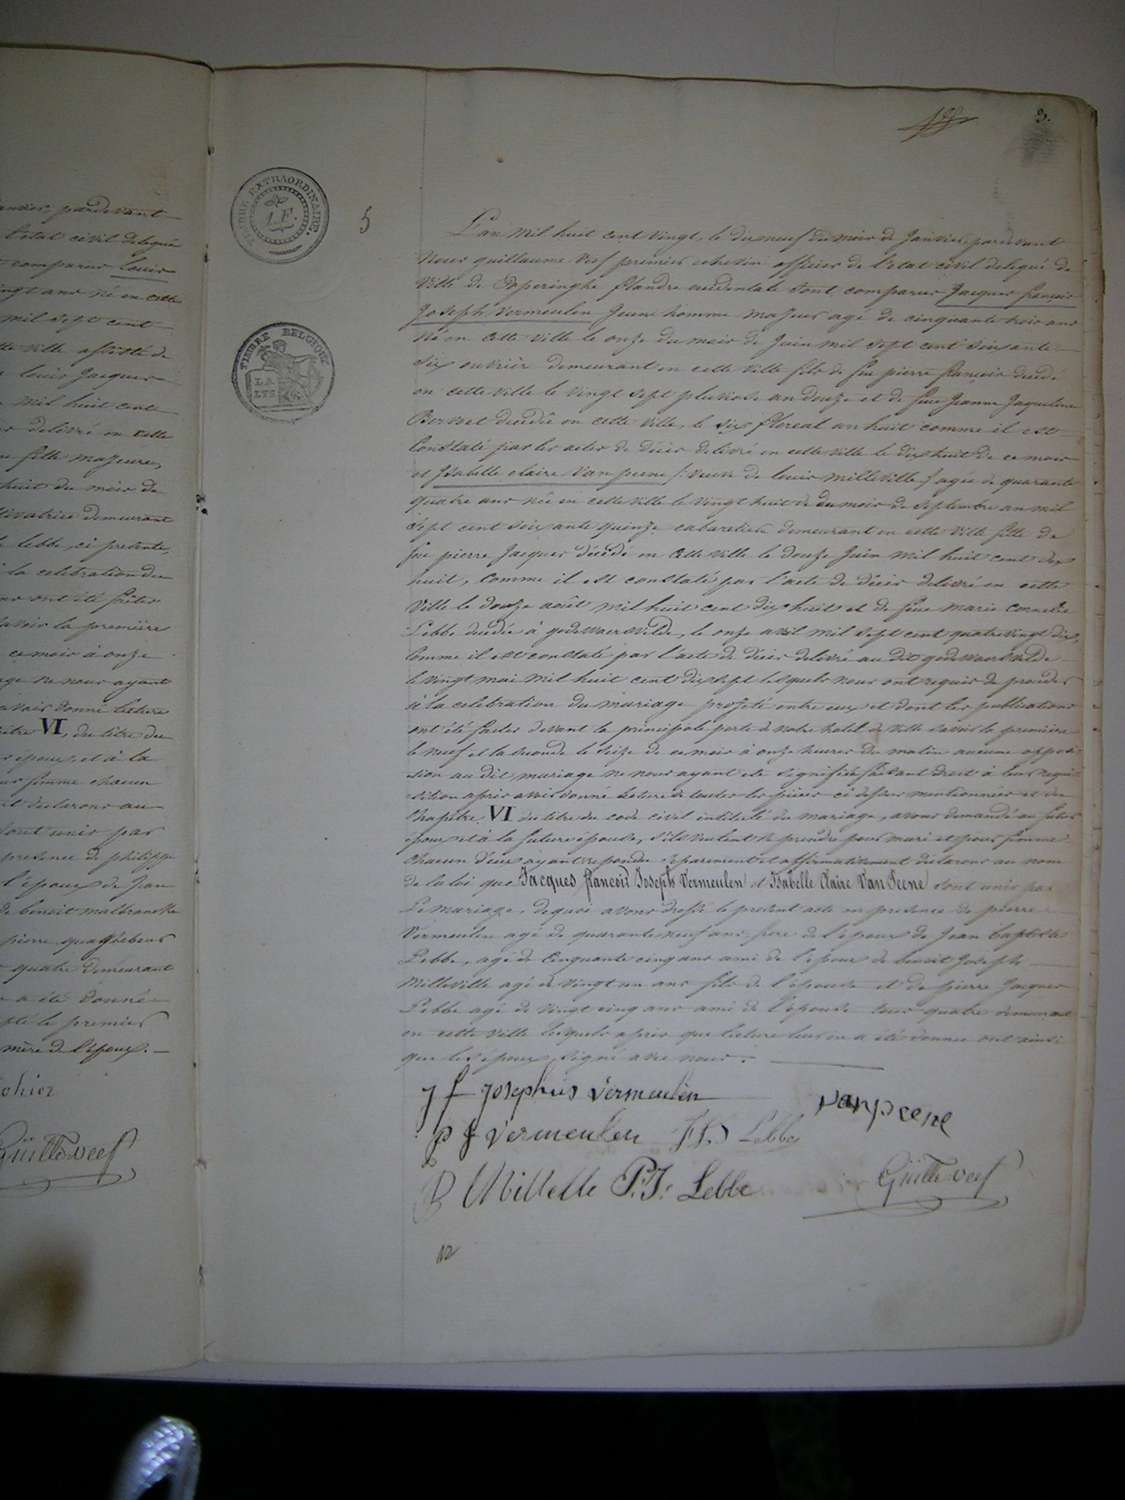 anvier, pardevant
l'etat civil delegué
comparus Louis
vingt ans né en cette
mil sept cent
cette ville assisté de
Louis Jacques
mil huit cent
delivré en cette
fille majeure,
huit du mois de
cultivatrice demeurant
Lebbe, ci presente,
la celebration du
ont été faites
savoir la premiere
ce mois à onze
ne nous ayant
avoir donné lecture
VI, du titre du
epoux, et à la
femme chacun
declarons au
sont unis par
presence de philippe
l'epoux de Jean
de benoit malbrancke
pierre quaghebeur
quatre demeurant
a été donné
le premier
mère de l'epoux.
Guille Veef
TIMBRE EXTRAORDINAIRE.
TIMBRE BELGIQUE
LA LYS
5
3.
L'an mil huit cent vingt, le dix neuf du mois de Janvier, pardevant
Nous guillaume Veef premier echevin officier de l'etat civil delegué de
Ville de Poperinghe flandre occidentale sont comparus Jacques françois
Joseph Vermeulen Jeune homme majeur agé de cinquante trois ans
né en cette ville le onze du mois de Juin mil sept cent soixante
six ouvrier demeurant en cette ville fils de feu pierre françois decedé
en cette ville le vingt sept pluviose an douze et de feue Jeanne Jaqueline
decedée en cette ville, le six floreal an huit comme il est
Constaté par les actes de décès delivré en cette ville le dix huit de ce mois
et Isabelle Claire Van peene (: veuve de Louis Milleville :) agée de quarante
quatre ans née en cette ville le vingt huit du mois de Septembre an mil
Sept cent soixante quinze cabaretiere demeurant en cette ville fille de
feu pierre Jacques décédé en cette ville le douze Juin mil huit cent dix
huit, Comme il est constaté par l'acte de décès delivré en cette
Ville le douze août mil huit cent dix huit et de feue marie cornelie
Lebbe decedée à godewaersvelde, le onze avril mil sept cent quatre vingt dix,
Comme il est constaté par l'acte de décès delivré au dit godewaersvelde
le vingt mai mil huit cent dix sept lesquels nous ont requis de proceder
à la celebration du mariage projeté entre eux et dont les publications
ont été faites devant la principale porte de notre hotel de ville savoir la premiere
le neuf et la seconde le seize de ce mois à onze heures du matin aucune oppo-
sition au dit mariage ne nous ayant été signifiée faisant droit à leur requi-
sition après avoir donné lecture de toutes les pièces ci dessus mentionnées et du
Chapitre VI du titre du code civil intitulé du mariage, avons demandé au futur
époux et à la future épouse, s'ils veulent se prendre pour mari et pour femme
chacun d'eux ayant repondu separement et affirmativement declarons au nom
de la loi que Jacques françois Joseph Vermeulen et Isabelle Claire Van Peene sont unis par
Le mariage, de quoi avons dressé le present acte en presence de pierre
Vermeulen agé de quarante neuf ans frere de l'epoux de Jean baptiste
Lebbe, agé de Cinquante cinq ans ami de l'epoux de benoit Joseph
Milleville agé de vingt un ans fils de l'épouse et de pierre Jacques
Lebbe agé de vingt cinq ans ami de l'epouse tous quatre demeurant
en cette ville lesquels après que lecture leur en a été donnée ont ainsi
que les epoux, signé avec nous.
j f josephus vermeulen
vanpeene
p j Vermeulen
Lebbe
B Millelle P: J: Lebbe
Guille Veef